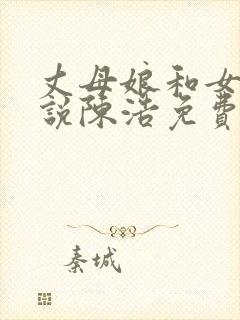 丈母娘和女
說陳浩免費
秦城